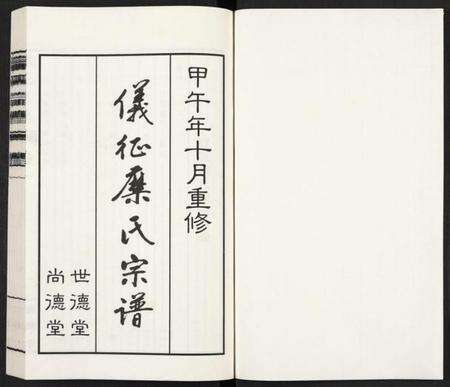 甲午年十月重修
儀征糜氏宗谱
世德堂
尚德堂